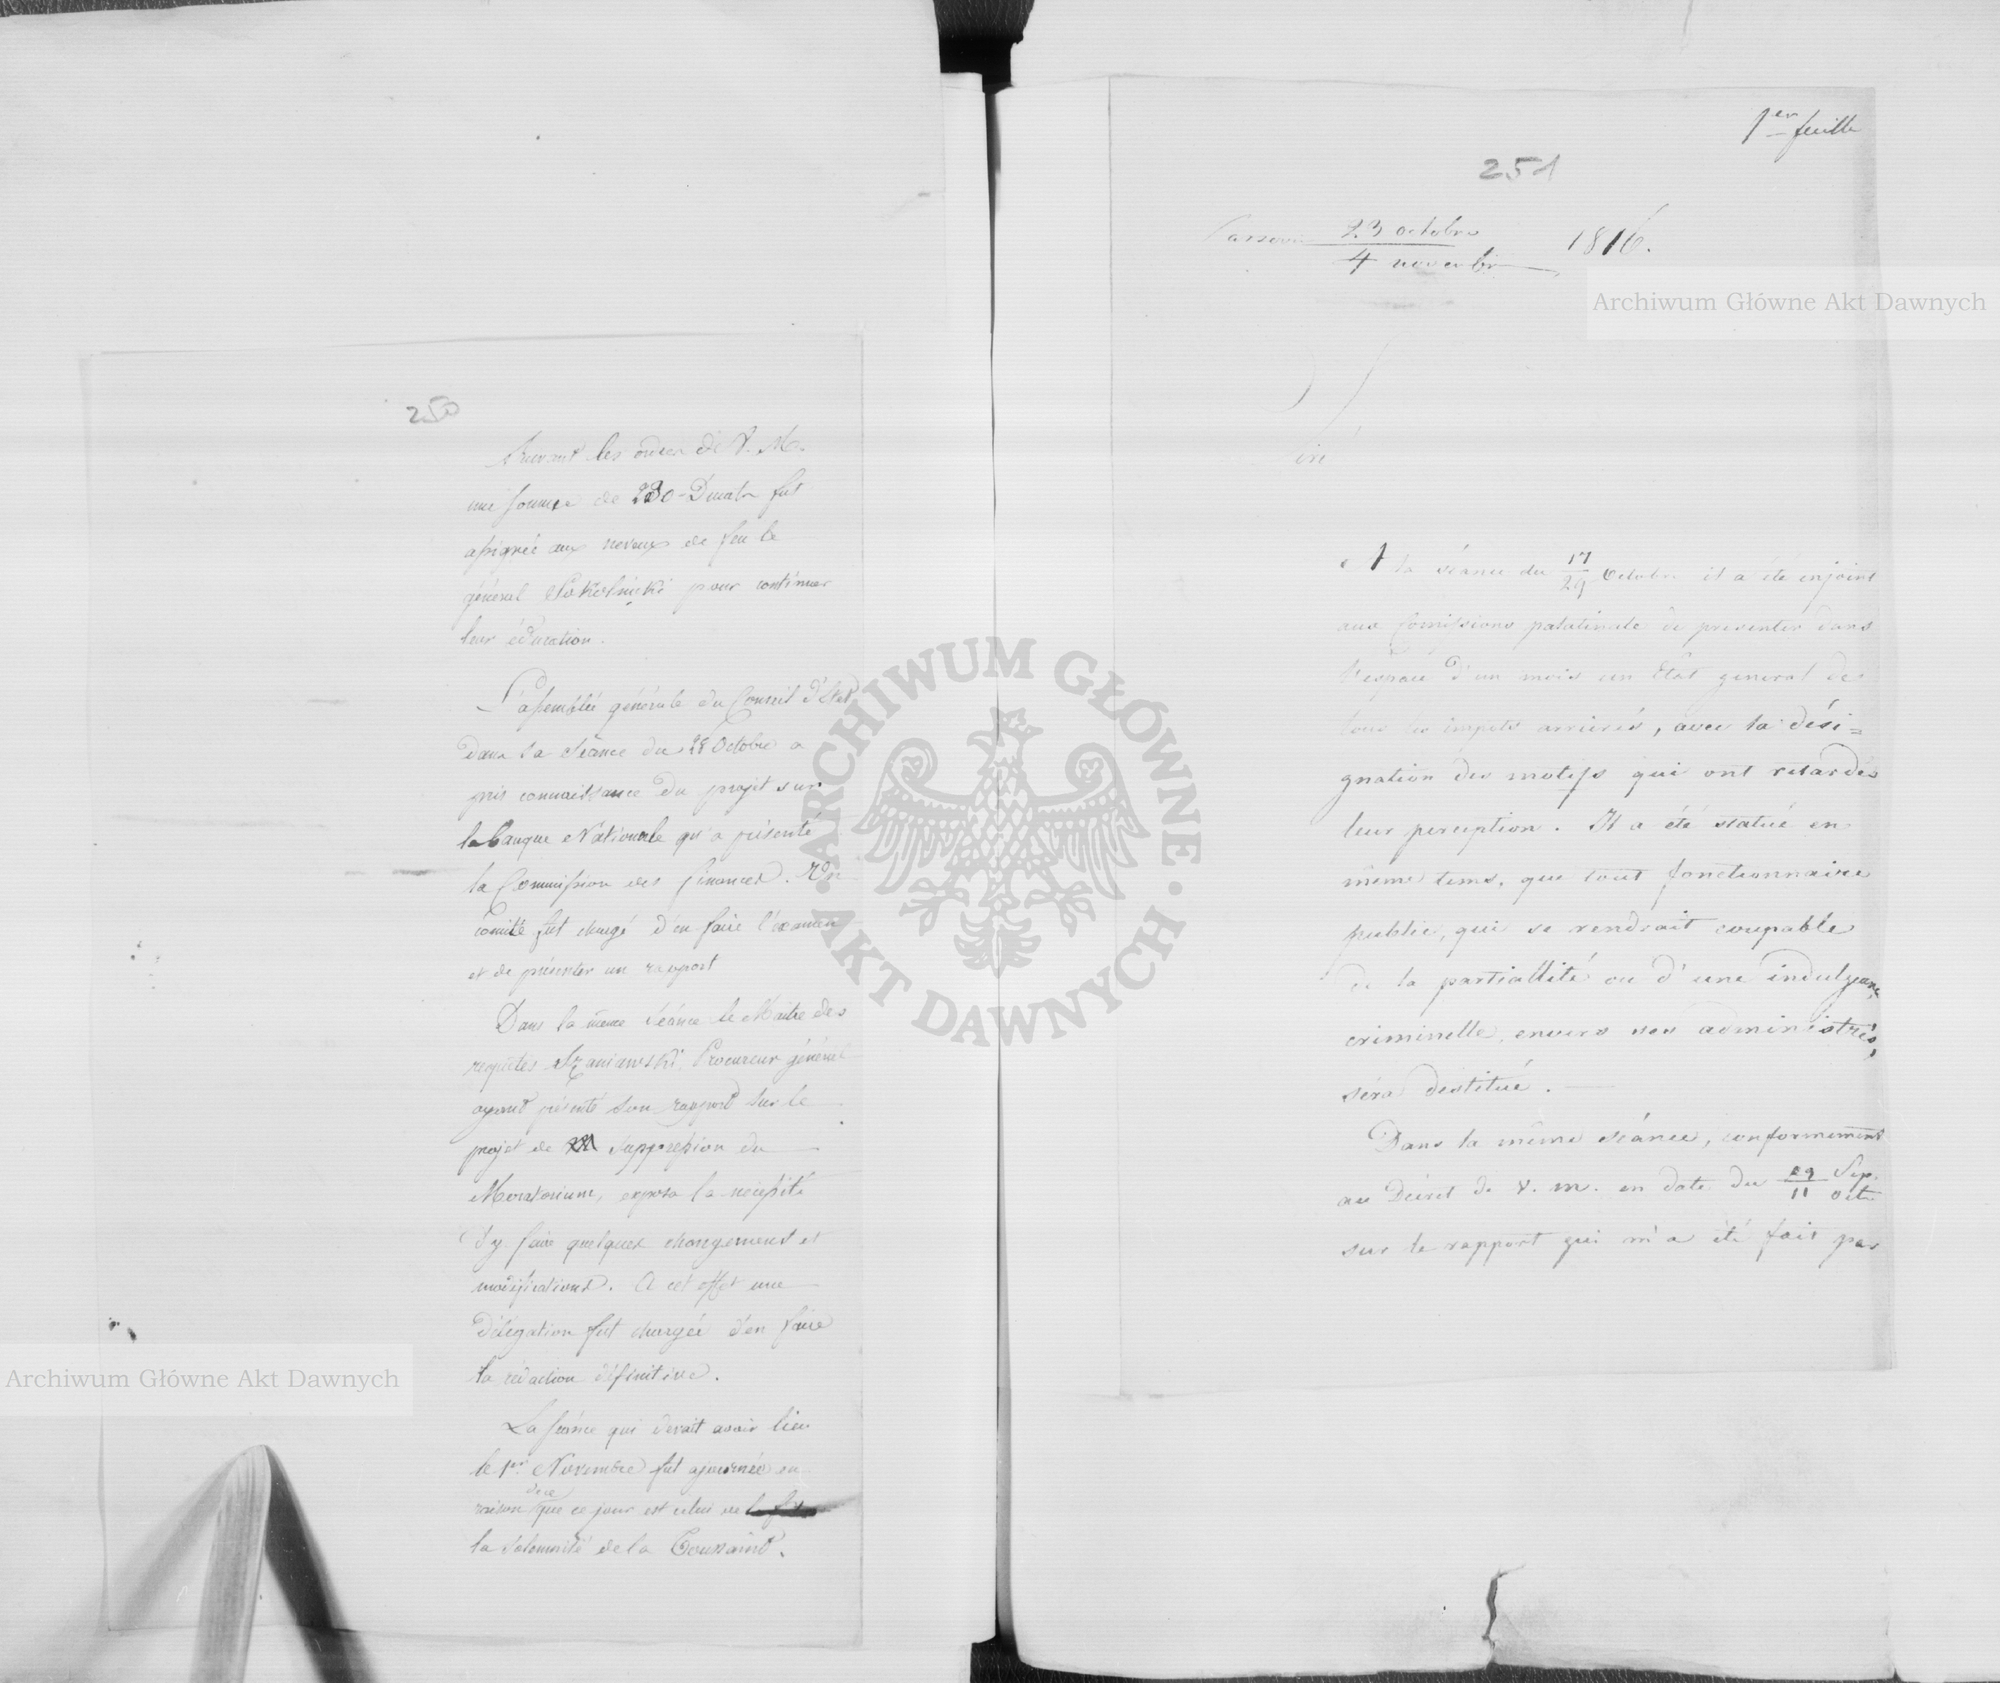 250
Suivant les ordres de V. M.
une somme de 230 Ducats fut
assignée aux neveux de feu le
général Sokolnicki pour continuer
leur éducation.
L'assemblée générale du Conseil d'Etat
dans sa séance du 28 Octobre a
pris connaissance du projet sur
la banque Nationale qu'a présenté
la Commission des finances. Un
comité fut chargé d'en faire l'examen
et de présenter un rapport
Dans la même séance le Maitre des
requêtes Szaniawski, Procureur général
ayant présenté son rapport sur le
projet de suppression du
Moratorium, exposa la nécessité
d'y faire quelques changements et
modifications. A cet effet une
délégation fut chargée d'en faire
la rédaction définitive.
La séance qui devait avoir lieu
le 1er Novembre fut ajournée en
raison de ce que ce jour est celui de
la solemnité de la Toussaint.
1er feuille
251
Varsovie 23 octobre / 4 novembre 1816.
Sire
A la séance du 17/29 Octobre il a été enjoint
aux Comissions palatinale de presenter dans
l'espace d'un mois un Etat general de
tous les impots arrierés, avec la dési=
gnation des motifs qui ont retardés
leur perception. Il a été statué en
même tems, que tout fonctionnaire
public, qui se rendrait coupable
de la partialité ou d'une indulgence
criminelle, envers ses administrés,
séra destitué.
Dans la même séance, conformement
au Décret de V. M. en date du 29 Sep. / 11 Oct.
sur le rapport qui m'a été fait par
Archiwum Główne Akt Dawnych
Archiwum Główne Akt Dawnych
ARCHIWUM GŁÓWNE AKT DAWNYCH